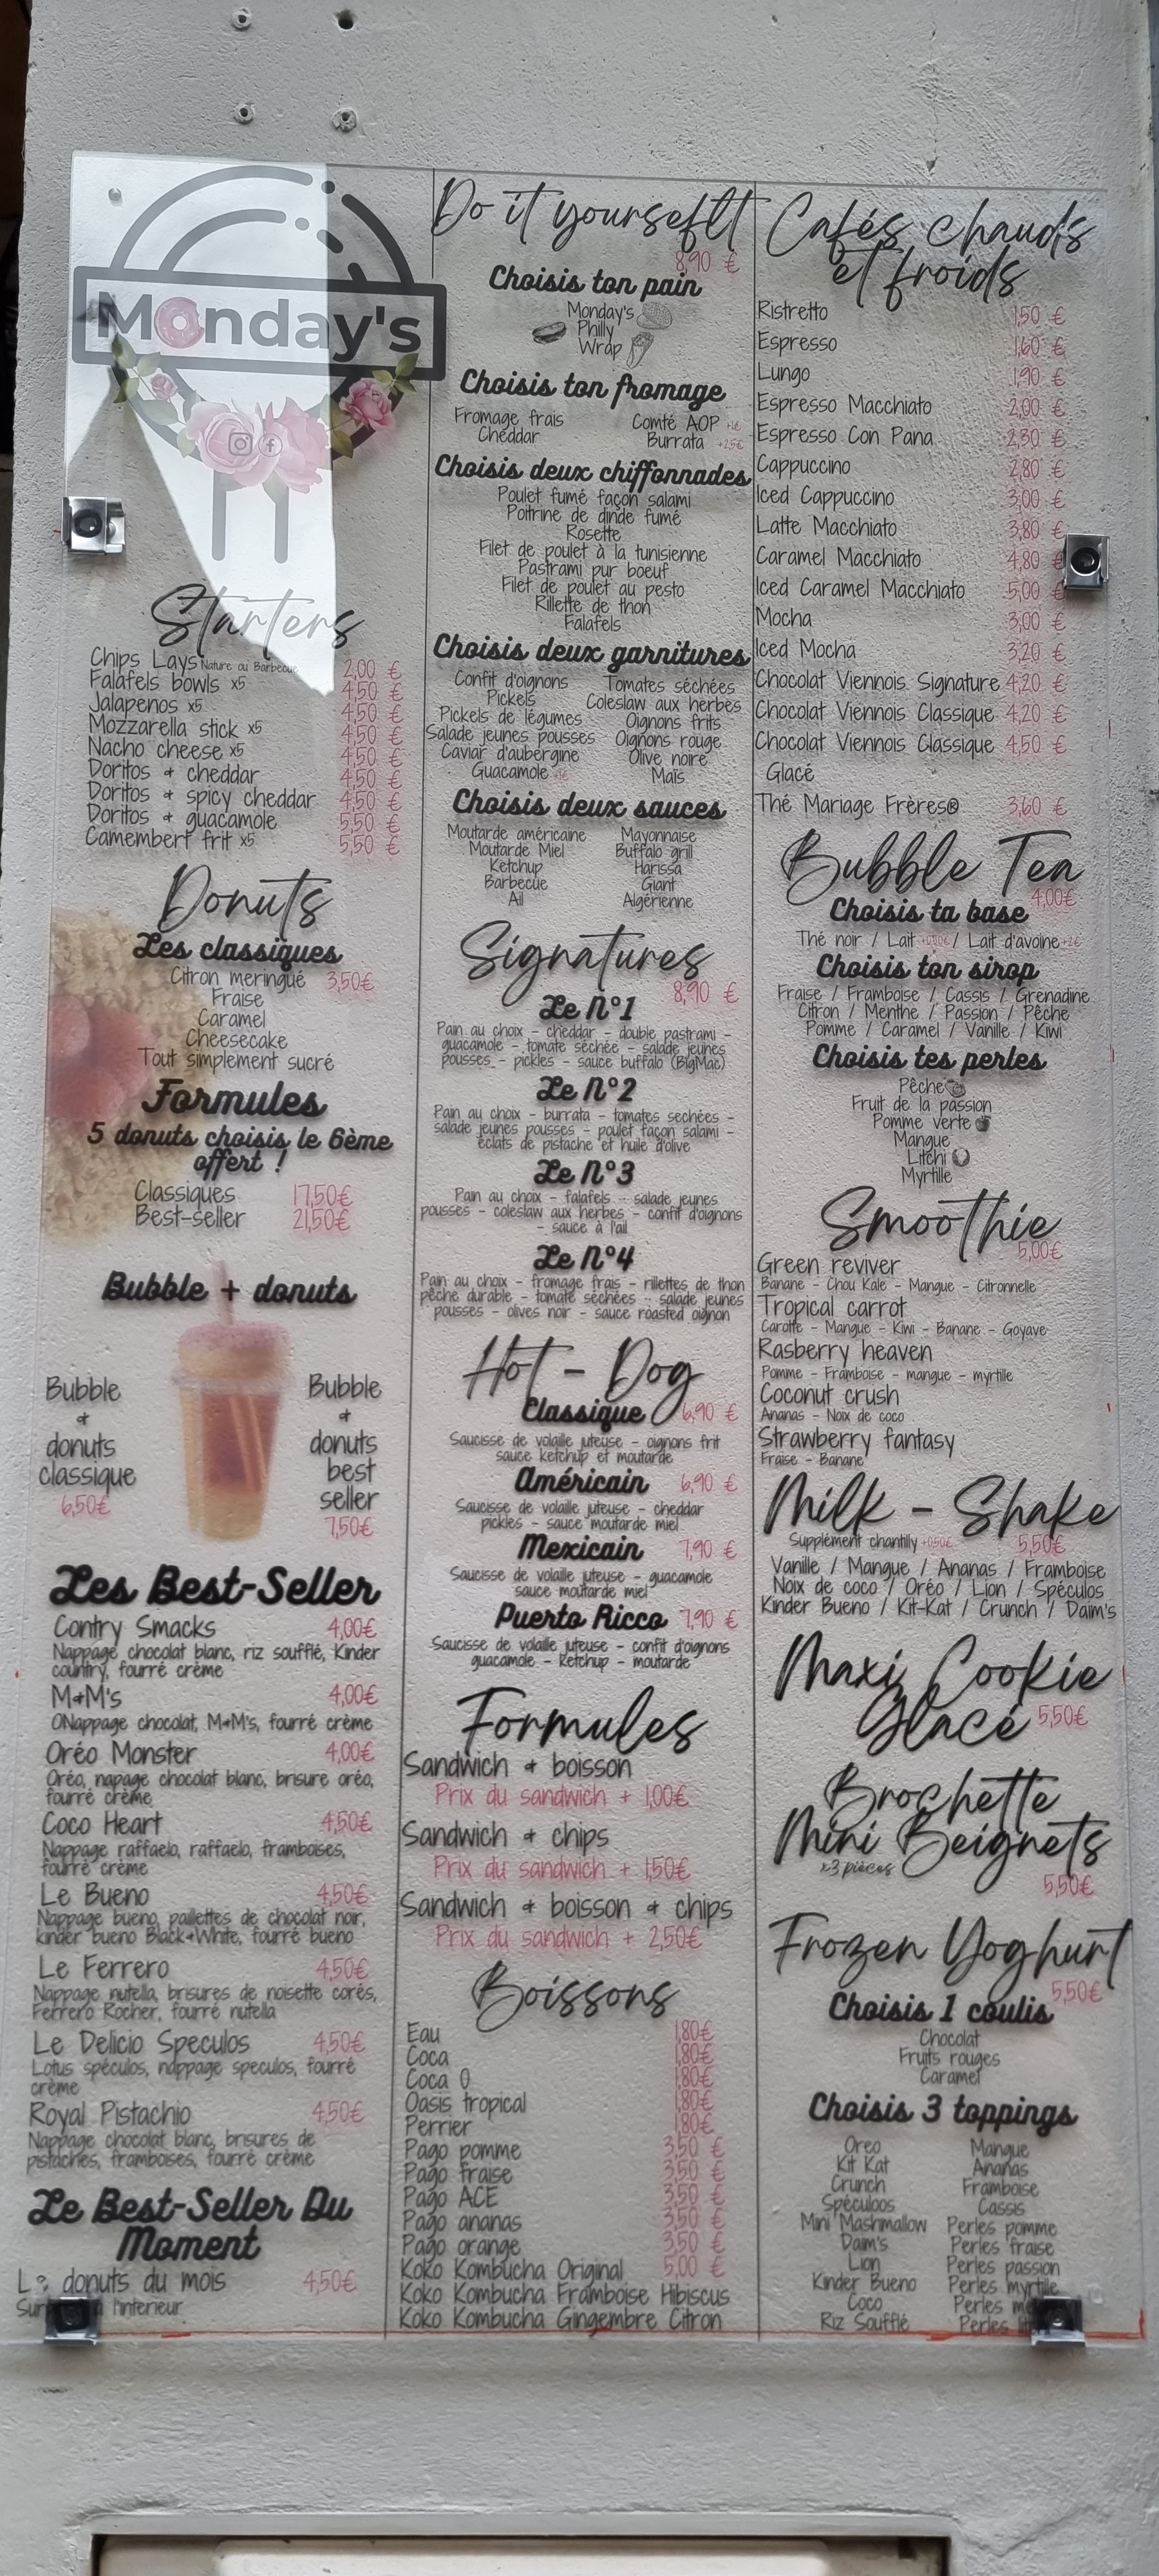 Monday's
Starters
Chips Lays Nature ou Barbecue 2,00 €
Falafels bowls x5 4,50 €
Jalapenos x5 4,50 €
Mozzarella stick x5 4,50 €
Nacho cheese x5 4,50 €
Doritos & cheddar 4,50 €
Doritos & spicy cheddar 4,50 €
Doritos & guacamole 5,50 €
Camembert frit x5 5,50 €
Donuts
Les classiques
Citron meringué 3,50€
Fraise
Caramel
Cheesecake
Tout simplement sucré
Formules
5 donuts choisis le 6ème
offert !
Classiques 17,50€
Best-seller 21,50€
Bubble + donuts
Bubble
&
donuts
classique
6,50€
Bubble
&
donuts
best
seller
7,50€
Les Best-Seller
Contry Smacks 4,00€
Nappage chocolat blanc, riz soufflé, Kinder
country, fourré crème
M&M's 4,00€
ONappage chocolat, M&M's, fourré crème
Oréo Monster 4,00€
Oréo, napage chocolat blanc, brisure oréo,
fourré crème
Coco Heart 4,50€
Nappage raffaelo, raffaelo, framboises,
fourré crème
Le Bueno 4,50€
Nappage bueno, paillettes de chocolat noir,
kinder bueno Black&White, fourré bueno
Le Ferrero 4,50€
Nappage nutella, brisures de noisette corés,
Ferrero Rocher, fourré nutella
Le Delicio Speculos 4,50€
Lotus spéculos, nappage speculos, fourré
crème
Royal Pistachio 4,50€
Nappage chocolat blanc, brisures de
pistaches, framboises, fourré crème
Le Best-Seller Du
Moment
Le donuts du mois 4,50€
l'interieur
Do it yourseflt
8,90 €
Choisis ton pain
Monday's
Philly
Wrap
Choisis ton fromage
Fromage frais Comté AOP +1€
Cheddar Burrata +2,5€
Choisis deux chiffonnades
Poulet fumé façon salami
Poitrine de dinde fumé
Rosette
Filet de poulet à la tunisienne
Pastrami pur boeuf
Filet de poulet au pesto
Rillette de thon
Falafels
Choisis deux garnitures
Confit d'oignons Tomates séchées
Pickels Coleslaw aux herbes
Pickels de légumes Oignons frits
Salade jeunes pousses Oignons rouge
Caviar d'aubergine Olive noire
Guacamole +1€ Maïs
Choisis deux sauces
Moutarde américaine Mayonnaise
Moutarde Miel Buffalo grill
Ketchup Harissa
Barbecue Giant
Ail Algérienne
Signatures
8,90 €
Le N°1
Pain au choix - cheddar - double pastrami -
guacamole - tomate séchée - salade jeunes
pousses - pickles - sauce buffalo (BigMac)
Le N°2
Pain au choix - burrata - tomates sechées -
salade jeunes pousses - poulet façon salami -
éclats de pistache et huile d'olive
Le N°3
Pain au choix - falafels - salade jeunes
pousses - coleslaw aux herbes - confit d'oignons
- sauce à l'ail
Le N°4
Pain au choix - fromage frais - rillettes de thon
pêche durable - tomate séchées - salade jeunes
pousses - olives noir - sauce roasted oignon
Hot - Dog
Classique 6,90 €
Saucisse de volaille juteuse - oignons frit
sauce ketchup et moutarde
Américain 6,90 €
Saucisse de volaille juteuse - cheddar
pickles - sauce moutarde miel
Mexicain 7,90 €
Saucisse de volaille juteuse - guacamole
sauce moutarde miel
Puerto Ricco 7,90 €
Saucisse de volaille juteuse - confit d'oignons
guacamole - Ketchup - moutarde
Formules
Sandwich & boisson
Prix du sandwich + 1,00€
Sandwich & chips
Prix du sandwich + 1,50€
Sandwich & boisson & chips
Prix du sandwich + 2,50€
Boissons
Eau 1,80€
Coca 1,80€
Coca 0 1,80€
Oasis tropical 1,80€
Perrier 1,80€
Pago pomme 3,50 €
Pago fraise 3,50 €
Pago ACE 3,50 €
Pago ananas 3,50 €
Pago orange 3,50 €
Koko Kombucha Original 5,00 €
Koko Kombucha Framboise Hibiscus
Koko Kombucha Gingembre Citron
Cafés chauds
et froids
Ristretto 1,50 €
Espresso 1,60 €
Lungo 1,90 €
Espresso Macchiato 2,00 €
Espresso Con Pana 2,30 €
Cappuccino 2,80 €
Iced Cappuccino 3,00 €
Latte Macchiato 3,80 €
Caramel Macchiato 4,80 €
Iced Caramel Macchiato 5,00 €
Mocha 3,00 €
Iced Mocha 3,20 €
Chocolat Viennois Signature 4,20 €
Chocolat Viennois Classique 4,20 €
Chocolat Viennois Classique 4,50 €
Glacé
Thé Mariage Frères® 3,60 €
Bubble Tea
4,00€
Choisis ta base
Thé noir / Lait / Lait d'avoine
Choisis ton sirop
Fraise / Framboise / Cassis / Grenadine
Citron / Menthe / Passion / Pêche
Pomme / Caramel / Vanille / Kiwi
Choisis tes perles
Pêche
Fruit de la passion
Pomme verte
Mangue
Litchi
Myrtille
Smoothie
5,00€
Green reviver
Banane - Chou Kale - Mangue - Citronnelle
Tropical carrot
Carotte - Mangue - Kiwi - Banane - Goyave
Rasberry heaven
Pomme - Framboise - mangue - myrtille
Coconut crush
Ananas - Noix de coco
Strawberry fantasy
Fraise - Banane
Milk - Shake
Supplément chantilly +0,50€ 5,50€
Vanille / Mangue / Ananas / Framboise
Noix de coco / Oréo / Lion / Spéculos
Kinder Bueno / Kit-Kat / Crunch / Daim's
Maxi Cookie
Glacé 5,50€
Brochette
Mini Beignets
x3 pièces
5,50€
Frozen Yoghurt
5,50€
Choisis 1 coulis
Chocolat
Fruits rouges
Caramel
Choisis 3 toppings
Oreo Mangue
Kit Kat Ananas
Crunch Framboise
Spéculoos Cassis
Mini Mashmallow Perles pomme
Daim's Perles fraise
Lion Perles passion
Kinder Bueno Perles myrtille
Coco Perles
Riz Soufflé Perles